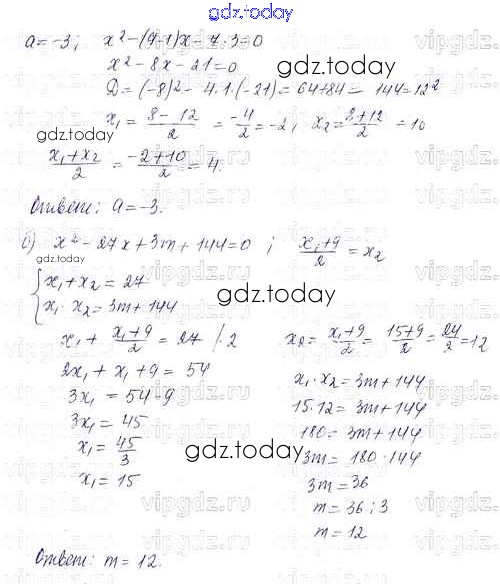 gdz.today
a = -3; x² - (9-1)x - 7·3 = 0
x² - 8x - 21 = 0
D = (-8)² - 4·1·(-21) = 64+84 = 144 = 12²
x₁ = (8-12)/2 = -4/2 = -2; x₂ = (8+12)/2 = 10
(x₁+x₂)/2 = (-2+10)/2 = 4.
gdz.today
Ответ: a = -3.
б) x² - 27x + 3m + 144 = 0 ; (x₁+9)/2 = x₂
{ x₁ + x₂ = 27
x₁ · x₂ = 3m + 144
gdz.today
x₁ + (x₁+9)/2 = 27 |·2
2x₁ + x₁ + 9 = 54
3x₁ = 54-9
3x₁ = 45
x₁ = 45/3
x₁ = 15
x₂ = (x₁+9)/2 = (15+9)/2 = 24/2 = 12
x₁ · x₂ = 3m + 144
15·12 = 3m + 144
180 = 3m + 144
3m = 180 - 144
3m = 36
m = 36 : 3
m = 12
gdz.today
Ответ: m = 12.
gdz.today